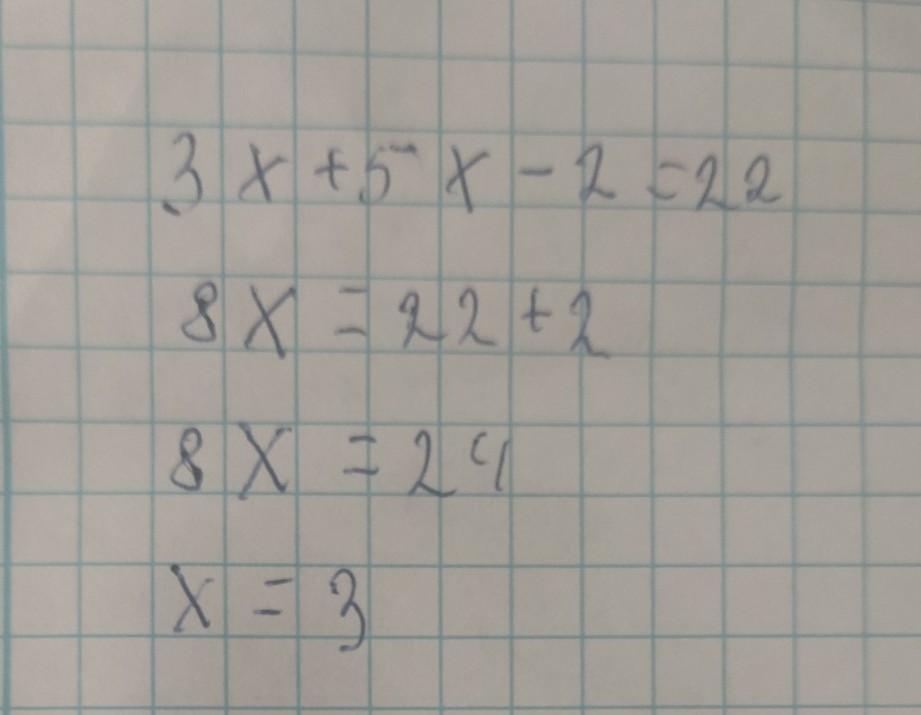 3x+5x-2=22
8x=22+2
8x=24
x=3